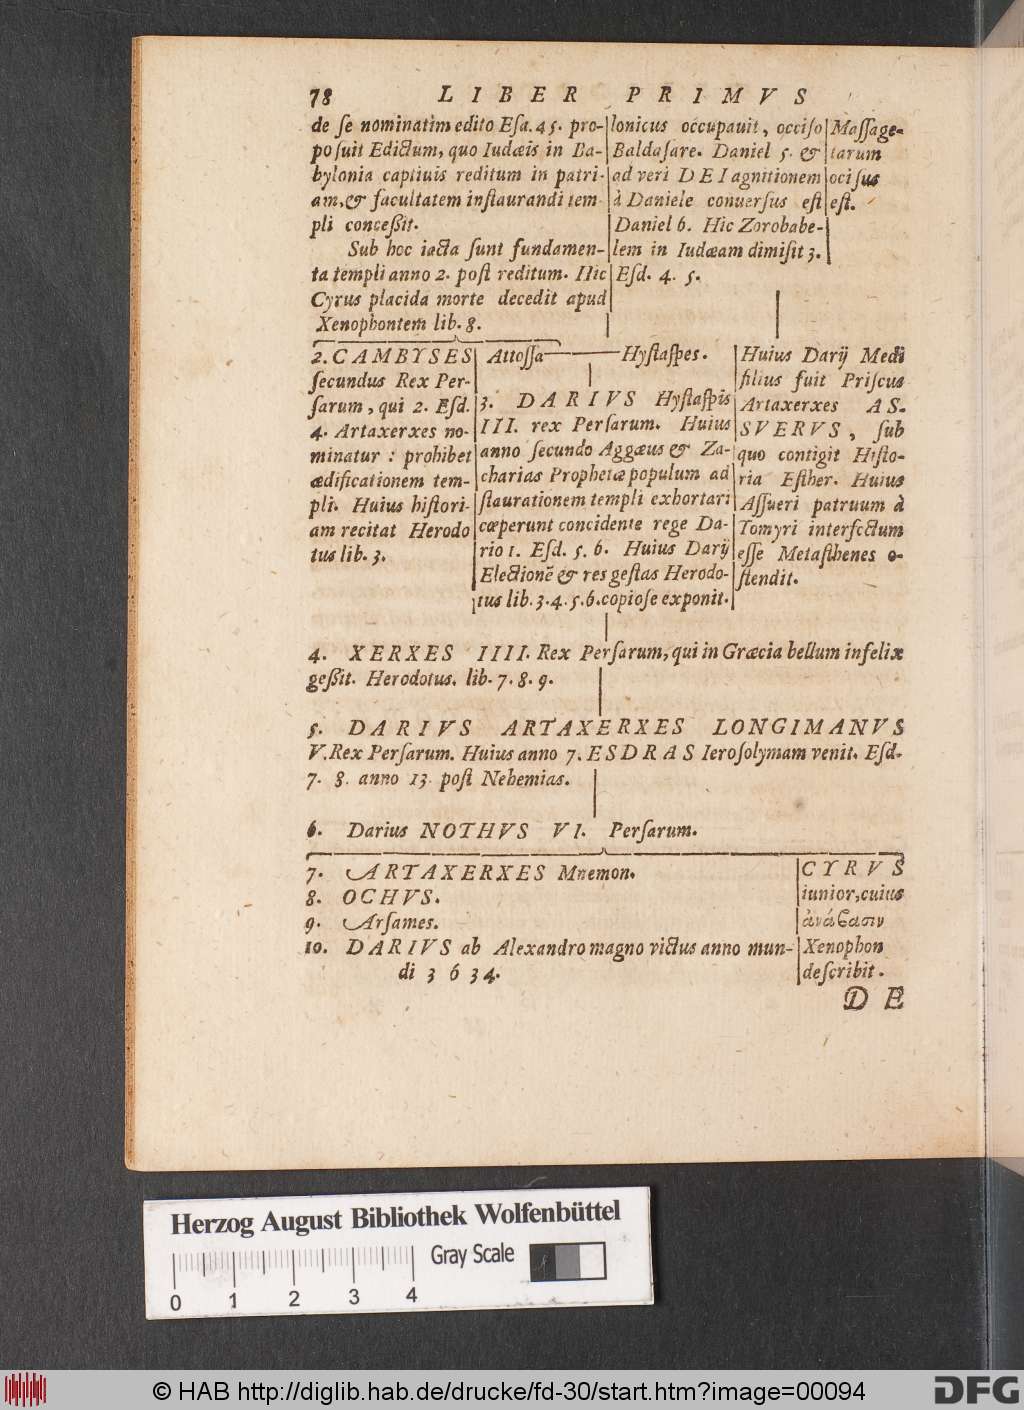 78 LIBER PRIMVS
de se nominatim edito Esa. 45. pro-
posuit Edictum, quo Iudæis in Ba-
bylonia captiuis reditum in patri-
am, & facultatem instaurandi tem-
pli conceßit.
Sub hoc iacta sunt fundamen-
ta templi anno 2. post reditum. Hic
Cyrus placida morte decedit apud
Xenophontem lib. 8.
lonicus occupauit, occiso
Baldasare. Daniel 5. &
ad veri DEI agnitionem
à Daniele conuersus est
Daniel 6. Hic Zorobabe-
lem in Iudæam dimisit 3.
Esd. 4. 5.
Massage-
tarum
ocisus
est.
2. CAMBYSES
secundus Rex Per-
sarum, qui 2. Esd.
4. Artaxerxes no-
minatur : prohibet
ædificationem tem-
pli. Huius histori-
am recitat Herodo
tus lib. 3.
Attossa Hystaspes.
3. DARIVS Hystaspis
III. rex Persarum. Huius
anno secundo Aggæus & Za-
charias Prophetæ populum ad
staurationem templi exhortari
cœperunt concidente rege Da-
rio 1. Esd. 5. 6. Huius Darij
Electionē & res gestas Herodo-
tus lib. 3. 4. 5. 6. copiose exponit.
Huius Darij Medi
filius fuit Priscus
Artaxerxes AS-
SVERVS, sub
quo contigit Histo-
ria Esther. Huius
Assueri patruum à
Tomyri interfectum
esse Metasthenes o-
stendit.
4. XERXES IIII. Rex Persarum, qui in Græcia bellum infelix
geßit. Herodotus. lib. 7. 8. 9.
5. DARIVS ARTAXERXES LONGIMANVS
V. Rex Persarum. Huius anno 7. ESDRAS Ierosolymam venit. Esd.
7. 8. anno 13. post Nehemias.
6. Darius NOTHVS VI. Persarum.
7. ARTAXERXES Mnemon.
8. OCHVS.
9. Arsames.
10. DARIVS ab Alexandro magno victus anno mun-
di 3634.
CYRVS
iunior, cuius
ἀνάϐασιν
Xenophon
describit.
DE
Herzog August Bibliothek Wolfenbüttel
Gray Scale
0 1 2 3 4
© HAB http://diglib.hab.de/drucke/fd-30/start.htm?image=00094
DFG